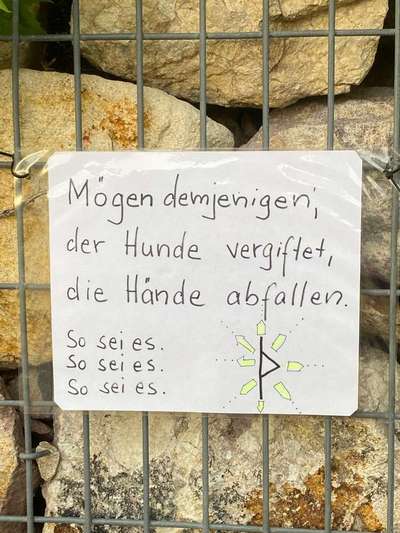 Mögen demjenigen,
der Hunde vergiftet,
die Hände abfallen.
So sei es.
So sei es.
So sei es.